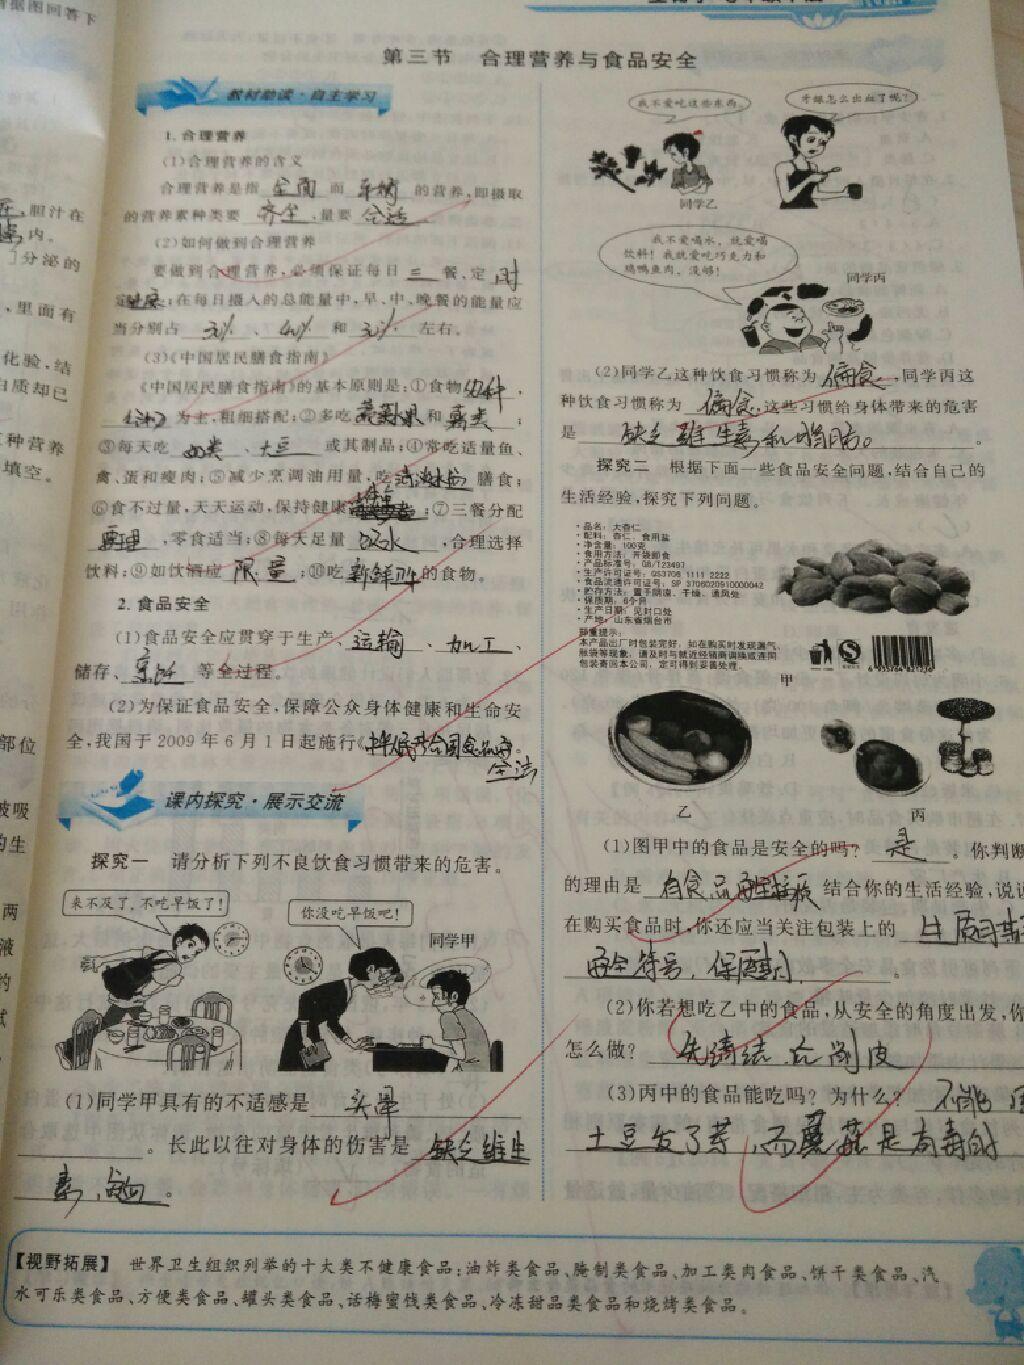 据图回答下
第三节 合理营养与食品安全
教材助读·自主学习
1.合理营养
(1)合理营养的含义
合理营养是指 全面 而 平衡 的营养,即摄取
的营养素种类要 齐全 、量要 合适 。
(2)如何做到合理营养
要做到合理营养,必须保证每日 三 餐、定 时
定量;在每日摄入的总能量中,早、中、晚餐的能量应
当分别占 30% 、 40% 和 30% 左右。
(3)《中国居民膳食指南》
《中国居民膳食指南》的基本原则是:①食物多样,
为主,粗细搭配;②多吃 蔬菜水果 和 薯类 ;
③每天吃 奶类 、 大豆 或其制品;④常吃适量鱼、
禽、蛋和瘦肉;⑤减少烹调油用量,吃 膳食;
⑥食不过量,天天运动,保持健康体重;⑦三餐分配
合理,零食适当;⑧每天足量 饮水 ,合理选择
饮料;⑨如饮酒应 限量 ;⑩吃 新鲜卫生 的食物。
2.食品安全
(1)食品安全应贯穿于生产、运输、加工、
储存、 等全过程。
(2)为保证食品安全,保障公众身体健康和生命安
全,我国于2009年6月1日起施行《中华人民共和国食品安
全法》。
课内探究·展示交流
探究一 请分析下列不良饮食习惯带来的危害。
来不及了,不吃早饭了!
你没吃早饭吧!
同学甲
(1)同学甲具有的不适感是 头晕
。长此以往对身体的伤害是 缺乏维生
素、贫血 。
我不爱吃这些东西。
牙龈怎么出血了呢?
同学乙
我不爱喝水,就爱喝
饮料!我就爱吃巧克力和
鸡鸭鱼肉,没够!
同学丙
(2)同学乙这种饮食习惯称为 偏食 ,同学丙这
种饮食习惯称为 偏食 ,这些习惯给身体带来的危害
是 缺乏维生素和脂肪。 。
探究二 根据下面一些食品安全问题,结合自己的
生活经验,探究下列问题。
·品名:大杏仁
·配料:杏仁、食用盐
·净含量:100克
·食用方法:开袋即食
·产品标准号:GB/T23497
·生产许可证号:QS3706 1111 2222
·食品流通许可证号:SP 3706020910000042
·贮存方法:置于阴凉、干燥、通风处
·保质期:6个月
·生产日期:见封口处
·产地:山东省烟台市
郑重提示:
本产品出厂时包装完好,如在购买时发现漏气、
胀袋等现象,请及时与就近经销商调换或连同
包装寄回本公司,定可得到妥善处理。
甲
乙
丙
(1)图甲中的食品是安全的吗? 是 。你判断
的理由是 有食品安全标志 结合你的生活经验,说说
在购买食品时,你还应当关注包装上的
安全符号、保质期 。
(2)你若想吃乙中的食品,从安全的角度出发,你
怎么做? 先清洗后削皮
(3)丙中的食品能吃吗?为什么? 不能
土豆发了芽,而蘑菇是有毒的
【视野拓展】 世界卫生组织列举的十大类不健康食品:油炸类食品、腌制类食品、加工类肉食品、饼干类食品、汽
水可乐类食品、方便类食品、罐头类食品、话梅蜜饯类食品、冷冻甜品类食品和烧烤类食品。